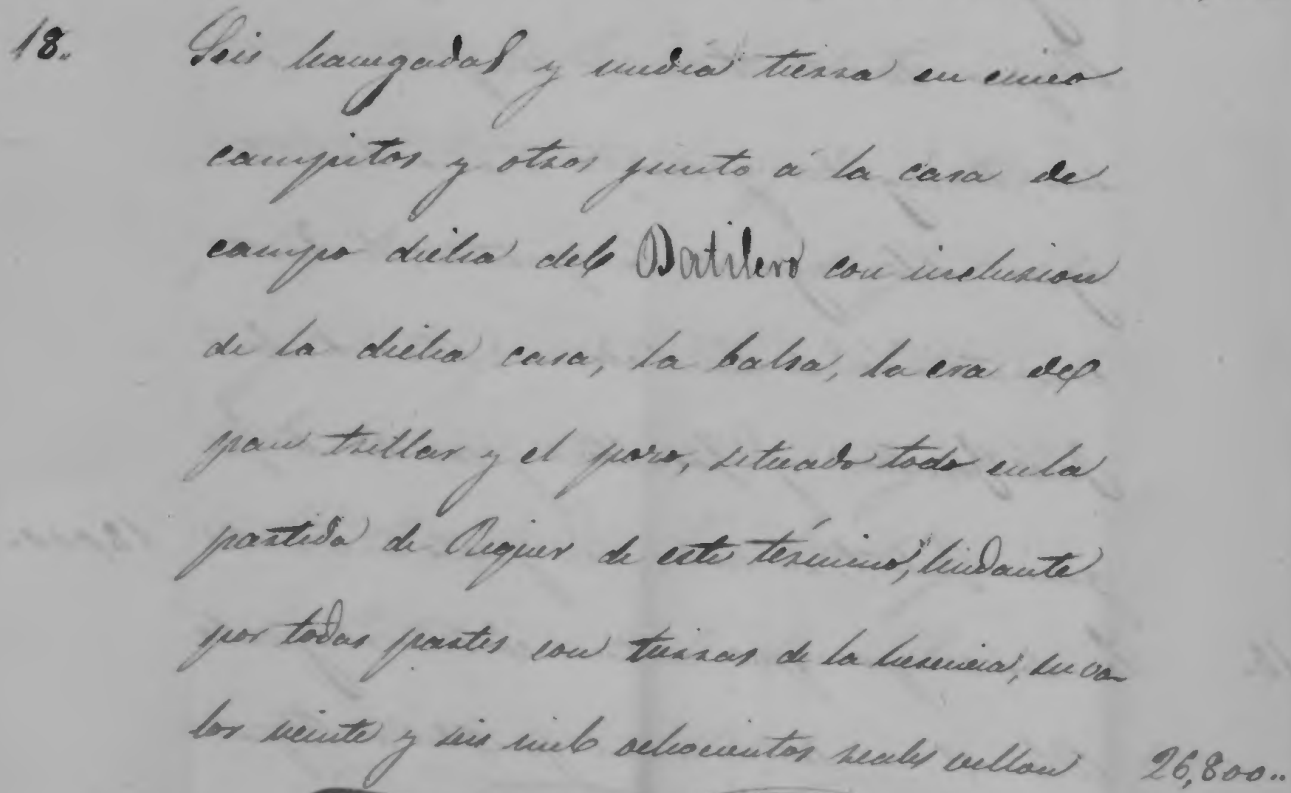 18. Seis hanegadas y media tierra en cinco
campitos y otros junto á la casa de
campo dicha del Datilero con inclusion
de la dicha casa, la balsa, la era del
pan trillar y el pozo, situado todo en la
partida de Riquer de este término, lindante
por todas partes con tierras de la herencia, su va-
lor veinte y seis mil ochocientos reales vellon 26,800..